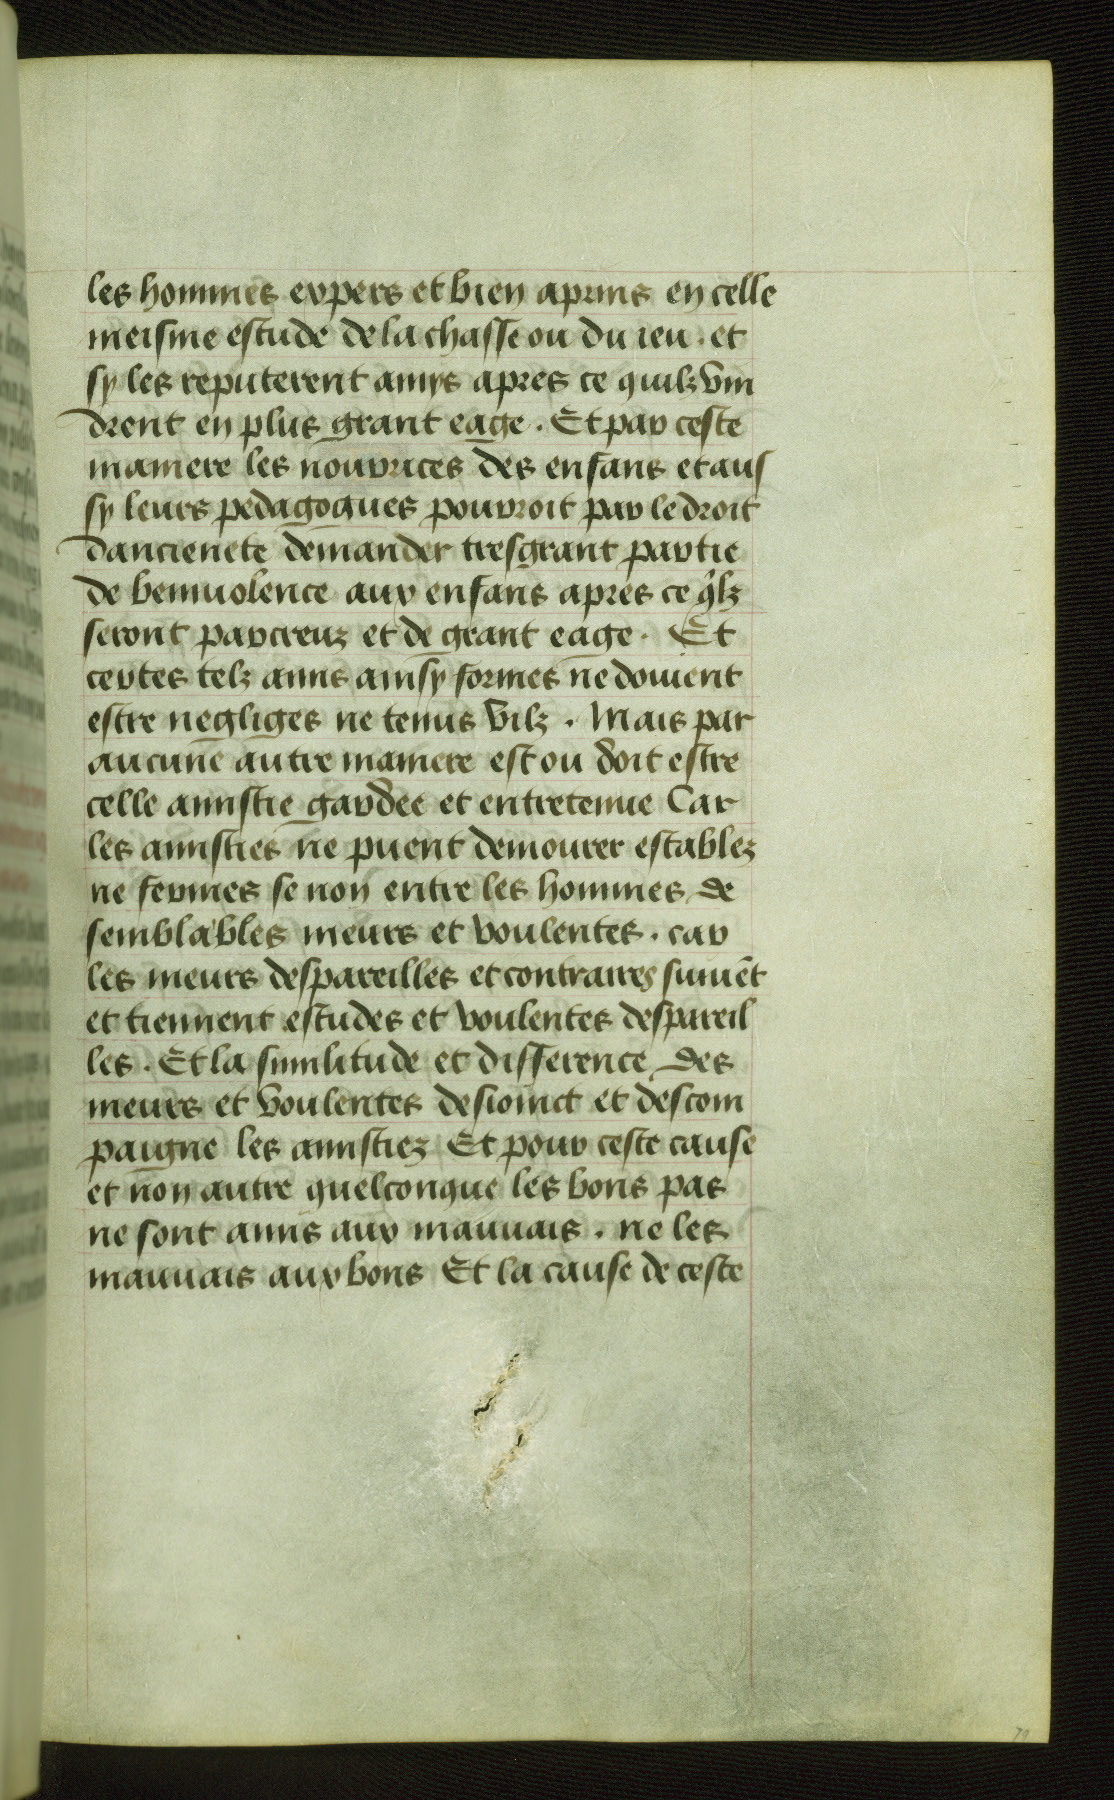 les hommes expers et bien aprins en celle
meisme estude de la chasse ou du ieu . et
sy les reputerent amys apres ce quilz vin
drent en plus grant eage . Et par ceste
maniere les nourrices des enfans et aus
sy leurs pedagogues pouroit par le droit
dancienete demander tresgrant partie
de beniuolence aux enfans apres ce q̃lz
seront parcreuz et de grant eage . Et
certes telz amis ainsy formes ne doiuent
estre negliges ne tenus vilz . Mais par
aucune autre maniere est ou doit estre
celle amistie gardee et entretenue Car
les amisties ne puent demourer establez
ne fermes se non entre les hommes de
semblables meurs et voulentes . car
les meurs despareilles et contraires suiuẽt
et tiennent estudes et voulentes despareil
les . Et la similitude et difference des
meurs et voulentes desioinct et descom
paigne les amistiez Et pour ceste cause
et non autre quelconque les bons pas
ne sont amis aux mauuais . ne les
mauuais aux bons Et la cause de ceste